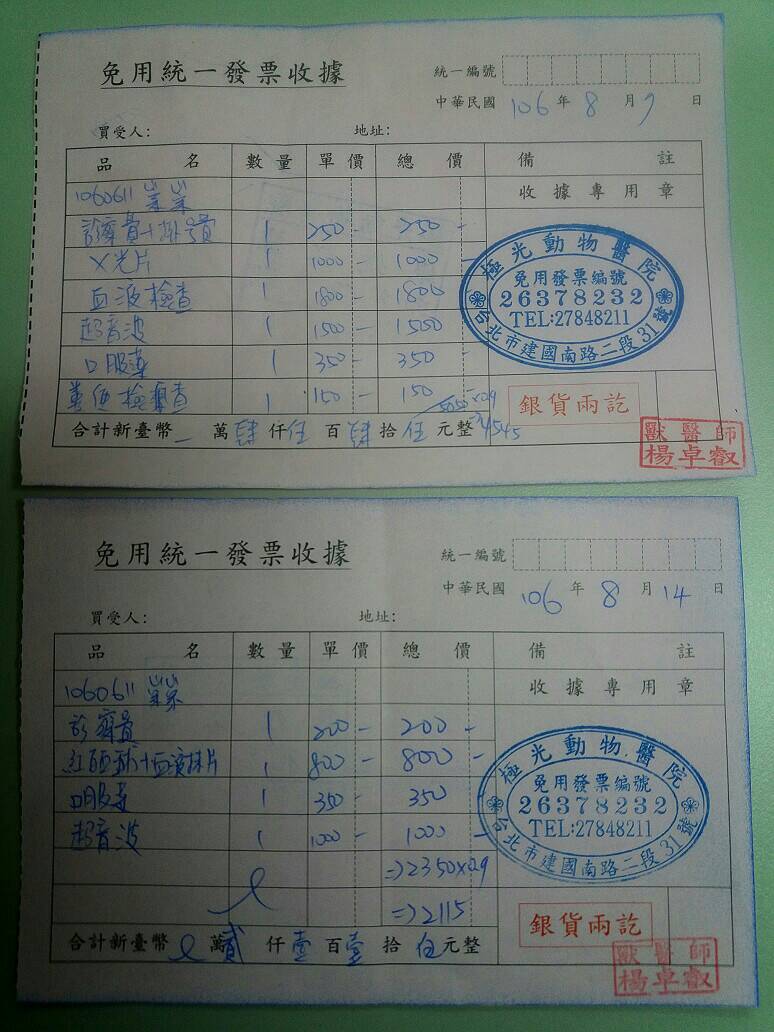 免用統一發票收據
統一編號
中華民國 106 年 8 月 7 日
買受人: 地址:
品名 數量 單價 總價 備註
1060611 收據專用章
診療費+掛號費 1 250- 250-
X光片 1 1000- 1000-
血液檢查 1 1800- 1800
超音波 1 1500- 1500
口服藥 1 350- 350
糞便檢查 1 150- 150
5050×0.9
4545
極光動物醫院
免用發票編號
26378232
TEL:27848211
台北市建國南路二段31號
銀貨兩訖
合計新臺幣 萬肆仟伍百肆拾伍元整
獸醫師
楊卓叡
免用統一發票收據
統一編號
中華民國 106 年 8 月 14 日
買受人: 地址:
品名 數量 單價 總價 備註
1060611 收據專用章
診療費 1 200- 200-
1 800- 800-
口服藥 1 350- 350-
超音波 1 1000- 1000-
=>2350×0.9
=>2115
極光動物醫院
免用發票編號
26378232
TEL:27848211
台北市建國南路二段31號
銀貨兩訖
合計新臺幣 萬貳仟壹百壹拾伍元整
獸醫師
楊卓叡